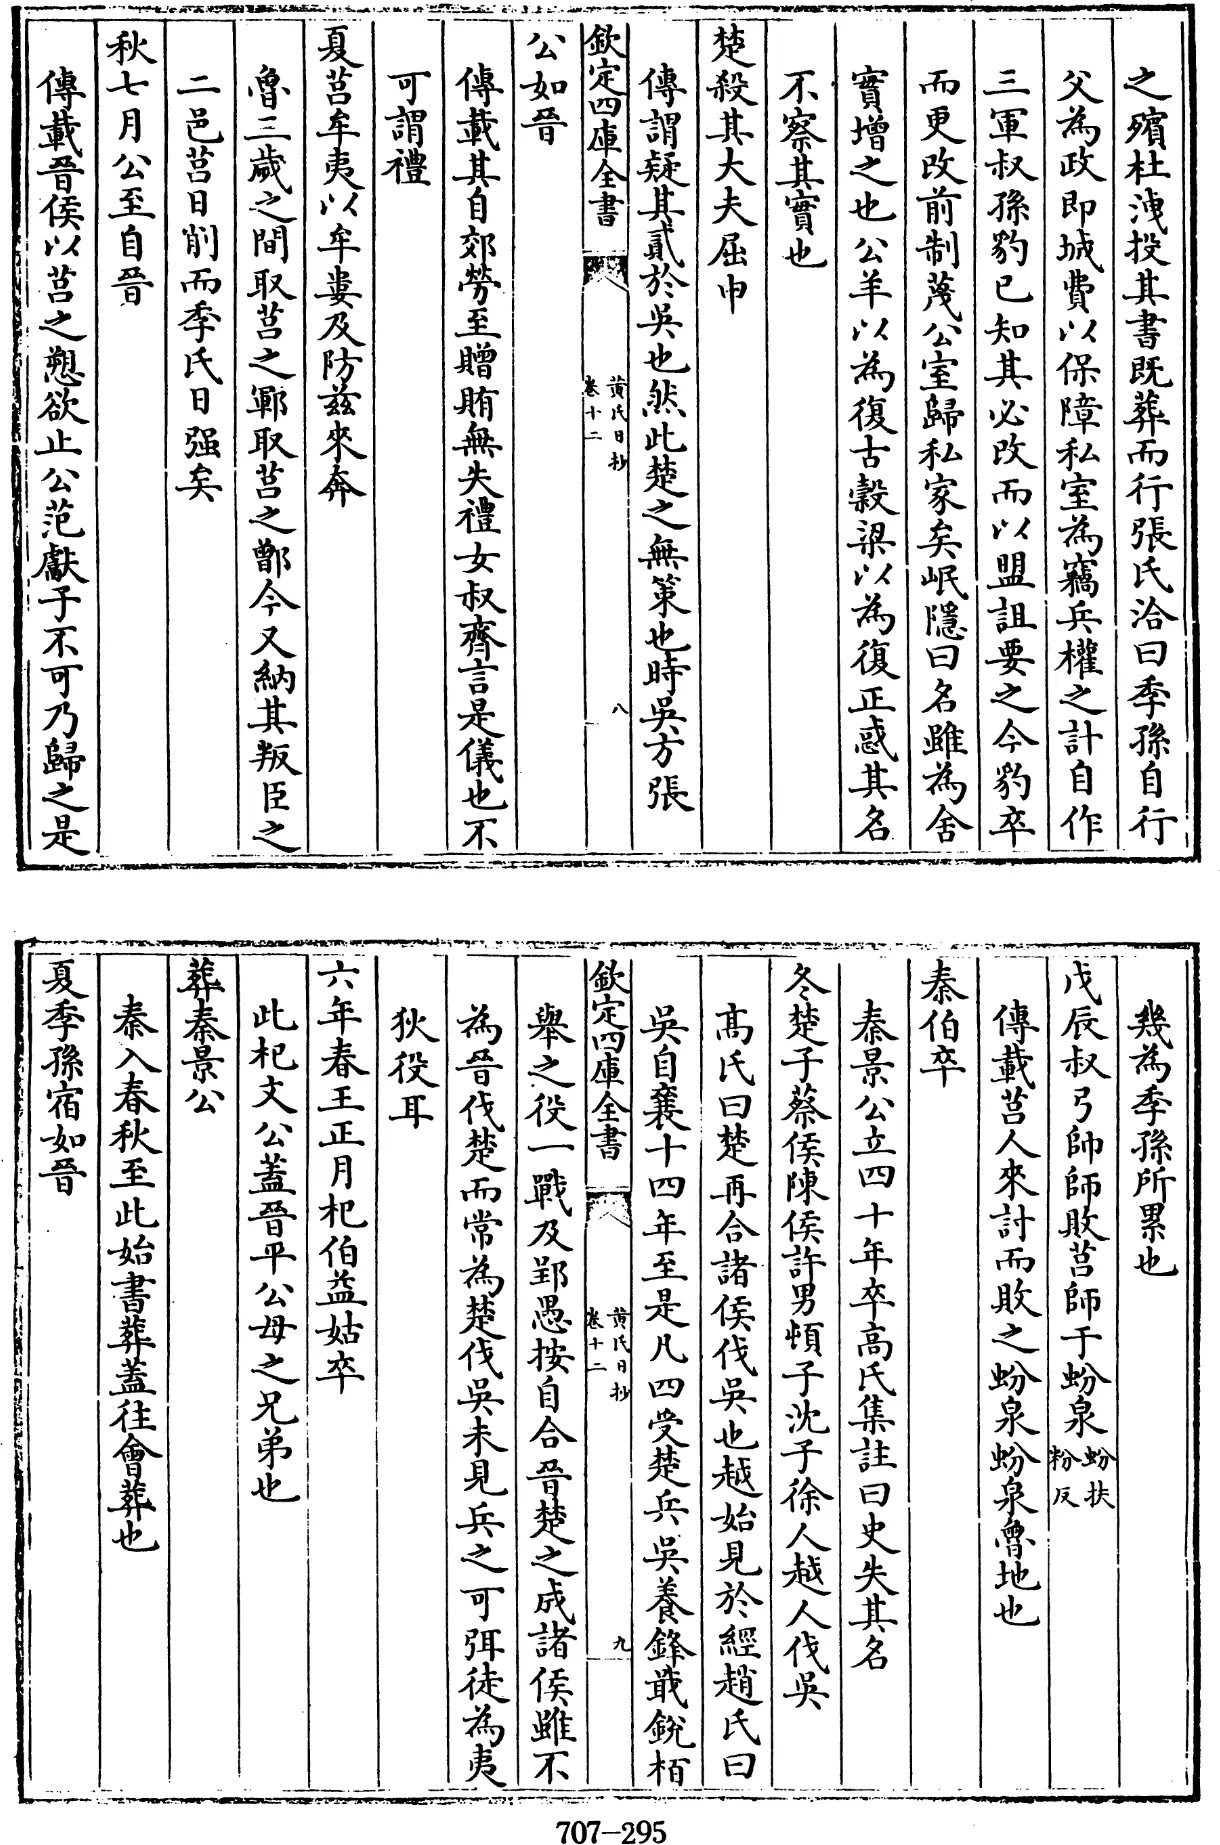 之殯杜洩投其書既葬而行張氏洽曰季孫自行
父為政即城費以保障私室為竊兵權之計自作
三軍叔孫豹已知其必改而以盟詛要之今豹卒
而更改前制蔑公室歸私家矣岷隱曰名雖為舍
實增之也公羊以為復古穀梁以為復正惑其名
不察其實也
楚殺其大夫屈申
傳謂疑其貳於吳也然此楚之無策也時吳方張
欽定四庫全書
黄氏日抄
卷十二
八
公如晉
傳載其自郊勞至贈賄無失禮女叔齊言是儀也不
可謂禮
夏莒牟夷以牟婁及防兹來奔
魯三歲之間取莒之鄆取莒之鄫今又納其叛臣之
二邑莒日削而季氏日强矣
秋七月公至自晉
傳載晉侯以莒之愬欲止公范獻子不可乃歸之是
幾為季孫所累也
戊辰叔弓帥師敗莒師于蚡泉
蚡扶
粉反
傳載莒人來討而敗之蚡泉蚡泉魯地也
秦伯卒
秦景公立四十年卒高氏集註曰史失其名
冬楚子蔡侯陳侯許男頓子沈子徐人越人伐吳
髙氏曰楚再合諸侯伐吳也越始見於經趙氏曰
吳自襄十四年至是凡四受楚兵吳養鋒戢銳栢
欽定四庫全書
黄氏日抄
卷十二
九
舉之役一戰及郢愚按自合晉楚之成諸侯雖不
為晉伐楚而常為楚伐吳未見兵之可弭徒為夷
狄役耳
六年春王正月杞伯益姑卒
此杞文公蓋晉平公母之兄弟也
葬秦景公
秦入春秋至此始書葬蓋往會葬也
夏季孫宿如晉
707-295